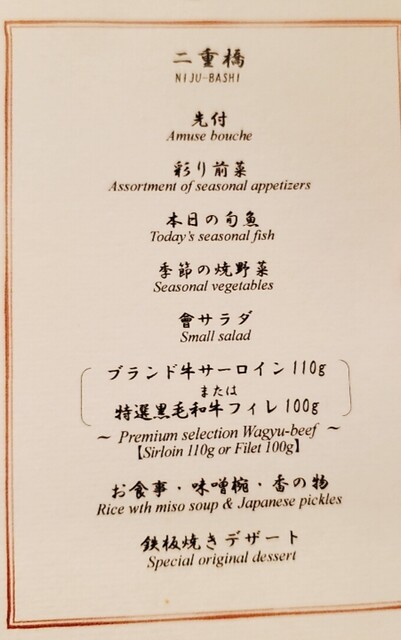 二重橋
NIJU-BASHI
先付
Amuse bouche
彩り前菜
Assortment of seasonal appetizers
本日の旬魚
Today's seasonal fish
季節の焼野菜
Seasonal vegetables
會サラダ
Small salad
ブランド牛サーロイン110g
または
特選黒毛和牛フィレ100g
～ Premium selection Wagyu-beef ～
【Sirloin 110g or Filet 100g】
お食事・味噌椀・香の物
Rice wth miso soup & Japanese pickles
鉄板焼きデザート
Special original dessert